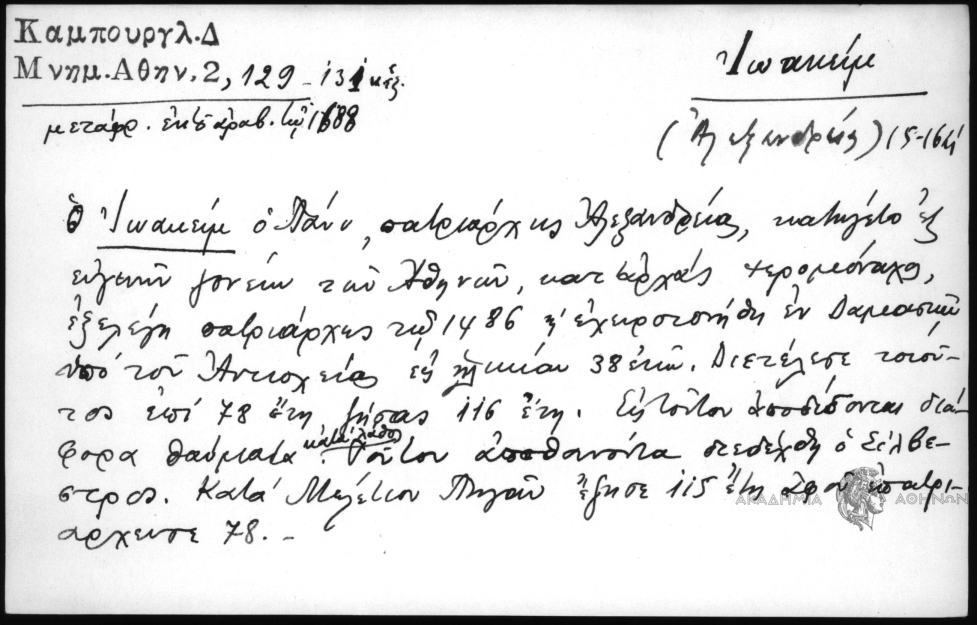 Καμπουργλ.Δ
Μνημ.Αθην. 2, 129 - 131 κἑξ.
μεταφρ. ἐκ τ. ἀραβ. τῷ 1688
Ἰωακείμ
(Ἀλεξανδρείας) 15-16αι
Ὁ Ἰωακείμ ὁ Πάνυ, πατριάρχης Ἀλεξανδρείας, κατήγετο ἐξ
εὐγενῶν γονέων τῶν Ἀθηνῶν, κατ' ἀρχάς ἱερομόναχος,
ἐξελέγη πατριάρχης τῷ 1486 κ' ἐχειροτονήθη ἐν Δαμασκῷ
ὑπό τοῦ Ἀντιοχείας εἰς ἡλικίαν 38 ἐτῶν. Διετέλεσε τοιοῦ-
τος ἐπί 78 ἔτη ζήσας 116 ἔτη. Εἰς τοῦτον ἀποδίδονται διά-
φορα θαύματα. Τοῦτον ἀποθανόντα διεδέχθη ὁ Σίλβε-
στρος. Κατά Μελέτιον Πηγᾶν ἔζησε 115 ἔτη ἀφοῦ ἐπατρι-
άρχευσε 78. -
ΑΚΑΔΗΜΙΑ ΑΘΗΝΩΝ